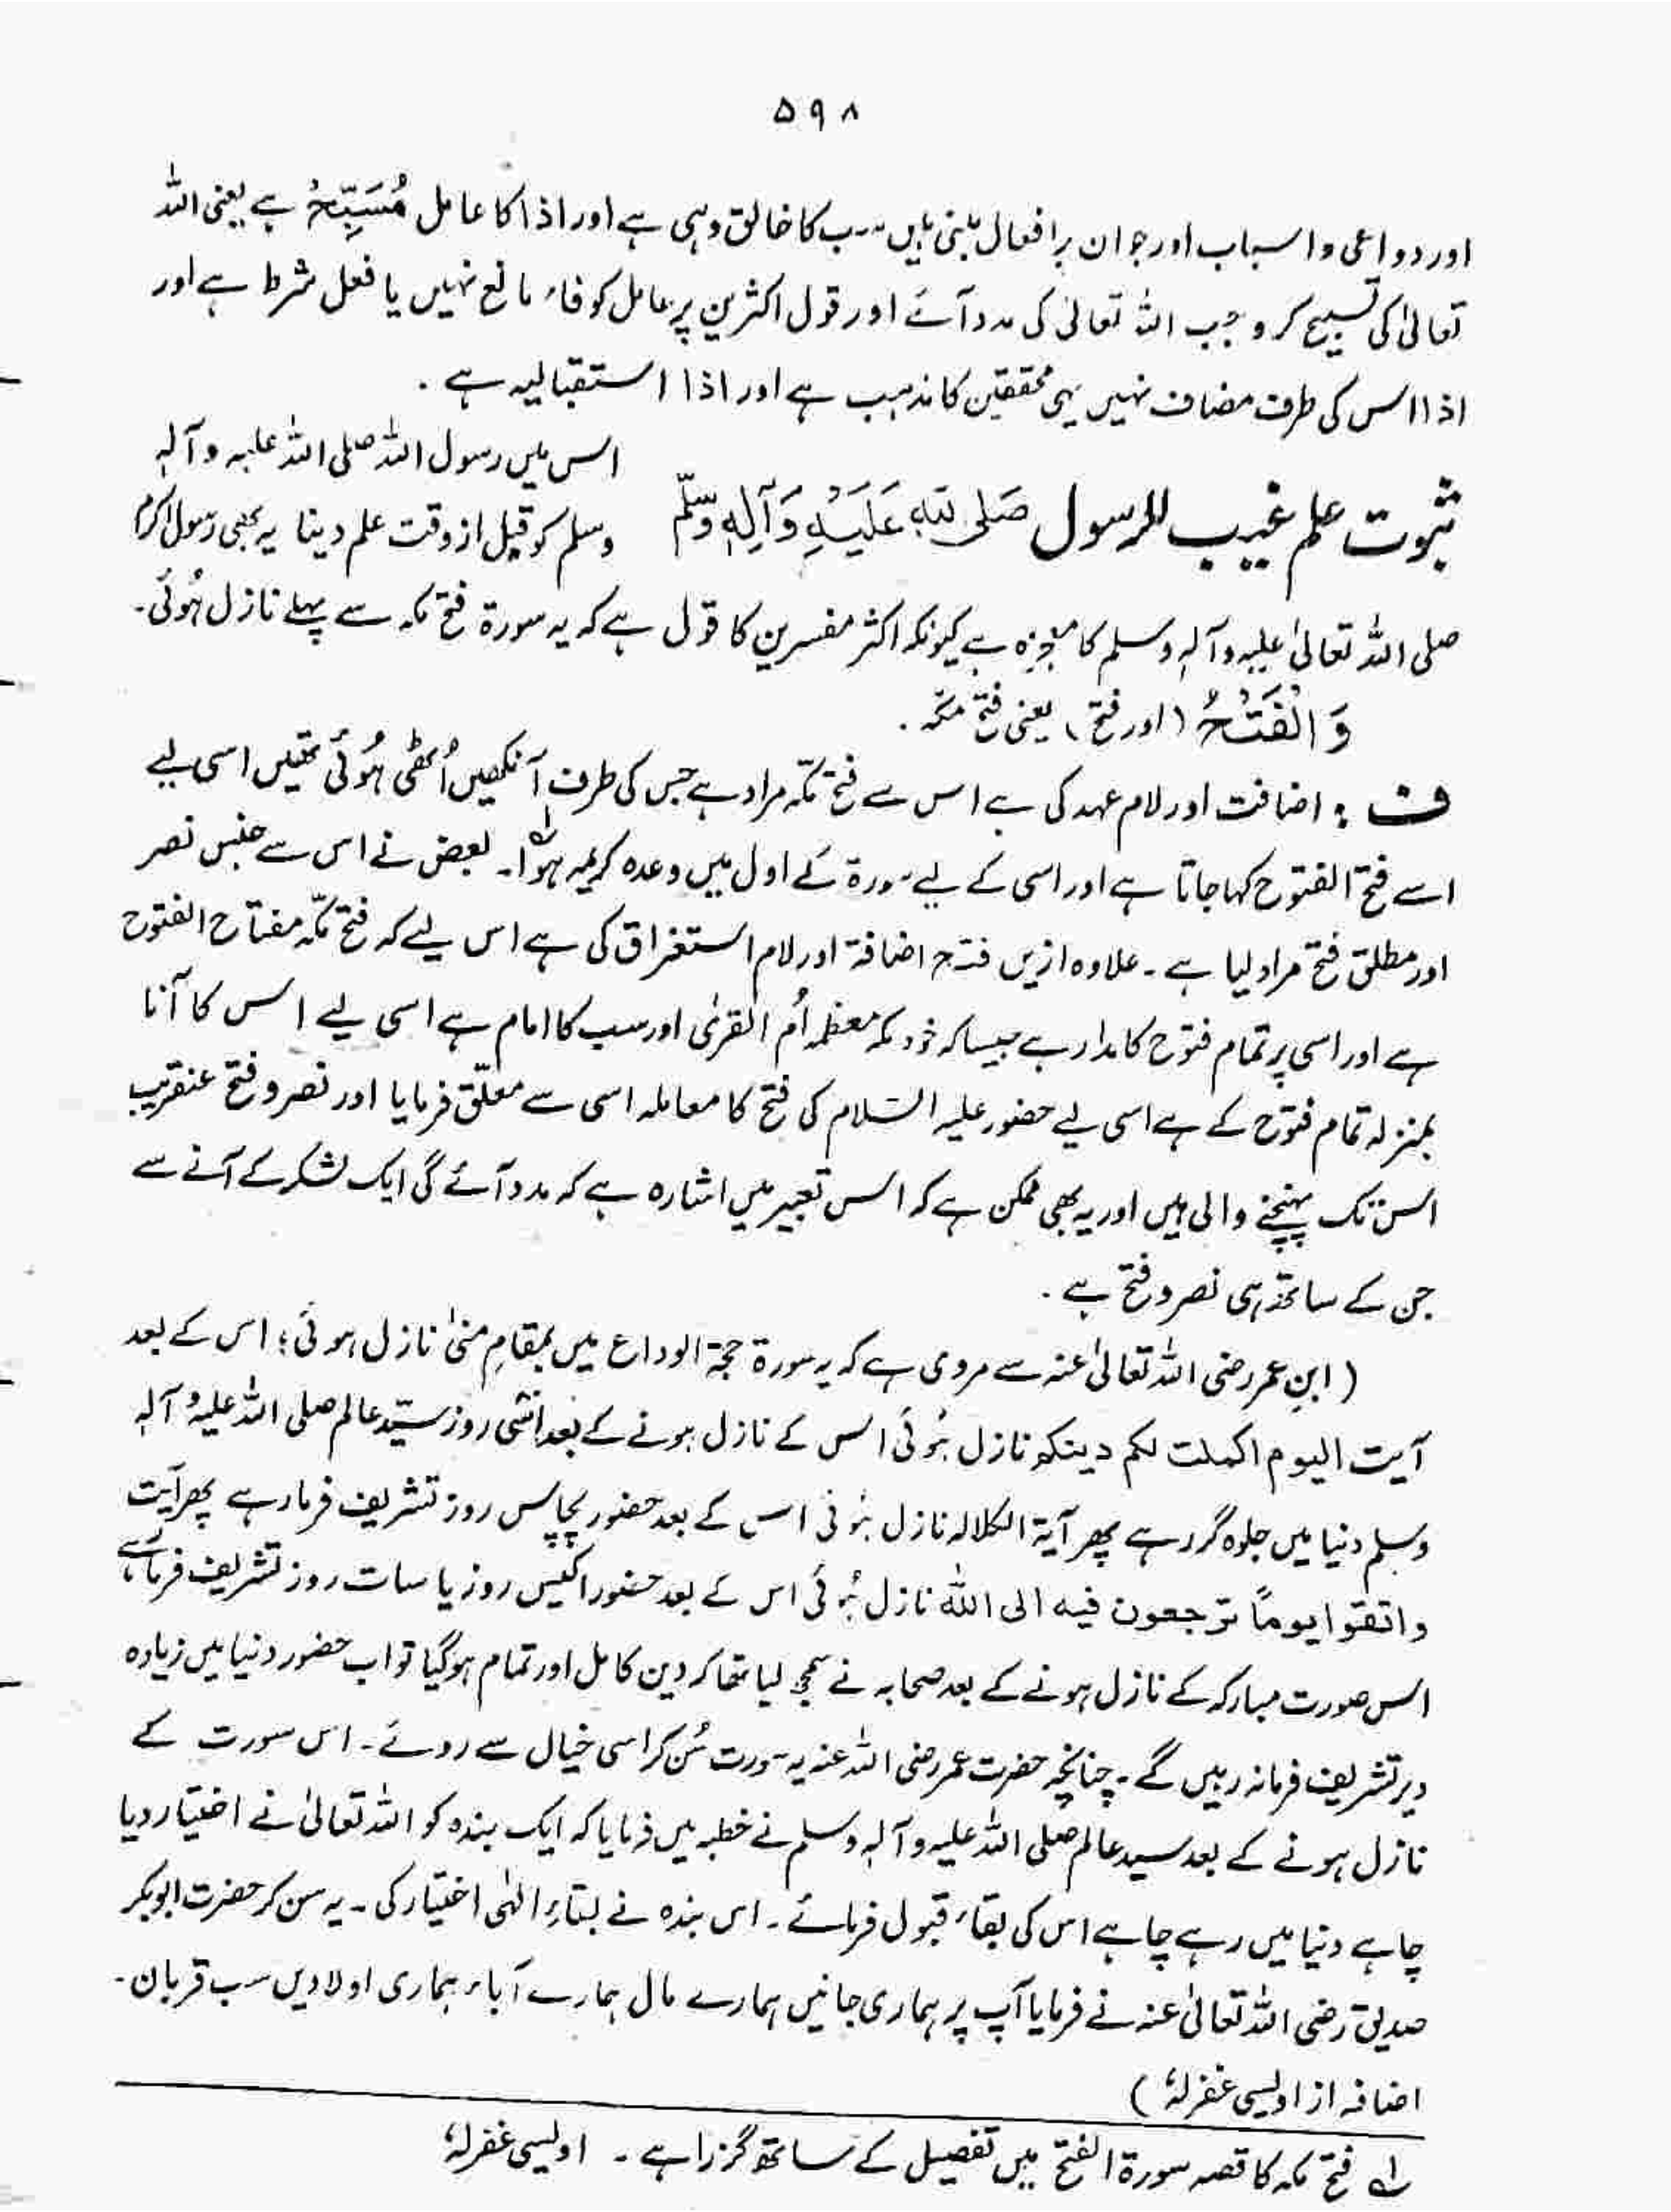 ۵۹۸
اور دواعی و اسباب اور جو ان پر افعال مبنی ہیں سب کا خالق وہی ہے اور اذا کا عامل مُسَبِّحُ ہے یعنی اللہ
تعالیٰ کی تسبیح کرو جب اللہ تعالیٰ کی مدد آئے اور قول اکثرین پر عامل کو فاء مانع نہیں یا فعل شرط ہے اور
اذا اس کی طرف مضاف نہیں یہی محققین کا مذہب ہے اور اذا استقبالیہ ہے ۔
ثبوت علم غیب للرسول صَلَی اللّٰہِ عَلَیْہِ وَآلِہٖ وسَلَّم
اس میں رسول اللہ صلی اللہ علیہ و آلہٖ
وسلم کو قبل از وقت علم دینا یہ بھی رسول اکرم
صلی اللہ تعالیٰ علیہ وآلہٖ وسلم کا معجزہ ہے کیونکہ اکثر مفسرین کا قول ہے کہ یہ سورۃ فتح مکہ سے پہلے نازل ہُوئی۔
وَ الْفَتْحُ (اور فتح) یعنی فتح مکّہ ۔
ف : اضافت اور لام عہد کی ہے اس سے فتح مکّہ مراد ہے جس کی طرف آنکھیں اُٹھی ہُوئی تھیں اسی لیے
اسے فتح الفتوح کہا جاتا ہے اور اسی کے لیے سورۃ کے اول میں وعدہ کریمہ ہوا۔ لہ بعض نے اس سے جنس نصر
اور مطلق فتح مراد لیا ہے ۔ علاوہ ازیں فتح اضافۃ اور لام استغراق کی ہے اس لیے کہ فتح مکّہ مفتاح الفتوح
ہے اور اسی پر تمام فتوح کا مدار ہے جیسا کہ خود مکہ معظمہ اُم القریٰ اور سب کا امام ہے اسی لیے اس کا آنا
بمنزلہ تمام فتوح کے ہے اسی لیے حضور علیہ السّلام کی فتح کا معاملہ اسی سے معلّق فرمایا اور نصر و فتح عنقریب
اس تک پہنچنے والی ہیں اور یہ بھی ممکن ہے کہ اس تعبیر میں اشارہ ہے کہ مدد آئے گی ایک لشکر کے آنے سے
جن کے ساتھ ہی نصر و فتح ہے ۔
( ابنِ عمر رضی اللہ تعالیٰ عنہ سے مروی ہے کہ یہ سورۃ حجۃ الوداع میں بمقامِ منیٰ نازل ہوئی؛ اس کے بعد
آیت الیوم اکملت لکم دینکم نازل ہُوئی اس کے نازل ہونے کے بعد اسّی روز سیّد عالم صلی اللہ علیہ و آلہٖ
وسلم دنیا میں جلوہ گر رہے پھر آیۃ الکلالہ نازل ہُوئی اس کے بعد حضور پچاس روز تشریف فرما رہے پھر آیت
واتقوا یوماً ترجعون فیہ الی اللّٰہ نازل ہُوئی اس کے بعد حضور اکیس روز یا سات روز تشریف فرما رہے
اس صورت مبارکہ کے نازل ہونے کے بعد صحابہ نے سمجھ لیا تھا کہ دین کامل اور تمام ہو گیا تو اب حضور دنیا میں زیادہ
دیر تشریف فرما نہ رہیں گے ۔ چنانچہ حضرت عمر رضی اللہ عنہ یہ سورت سُن کر اسی خیال سے روئے ۔ اس سورت کے
نازل ہونے کے بعد سید عالم صلی اللہ علیہ و آلہٖ وسلم نے خطبہ میں فرمایا کہ ایک بندہ کو اللہ تعالیٰ نے اختیار دیا
چاہے دنیا میں رہے چاہے اس کی بقاء قبول فرمائے ۔ اس بندہ نے بقاءِ الٰہی اختیار کی ۔ یہ سن کر حضرت ابوبکر
صدیق رضی اللہ تعالیٰ عنہ نے فرمایا آپ پر ہماری جانیں ہمارے مال ہمارے آباء ہماری اولادیں سب قربان۔
اضافہ از اویسی غفرلہٗ )
لہ فتح مکہ کا قصہ سورۃ الفتح میں تفصیل کے ساتھ گزرا ہے ۔ اویسی غفرلہٗ